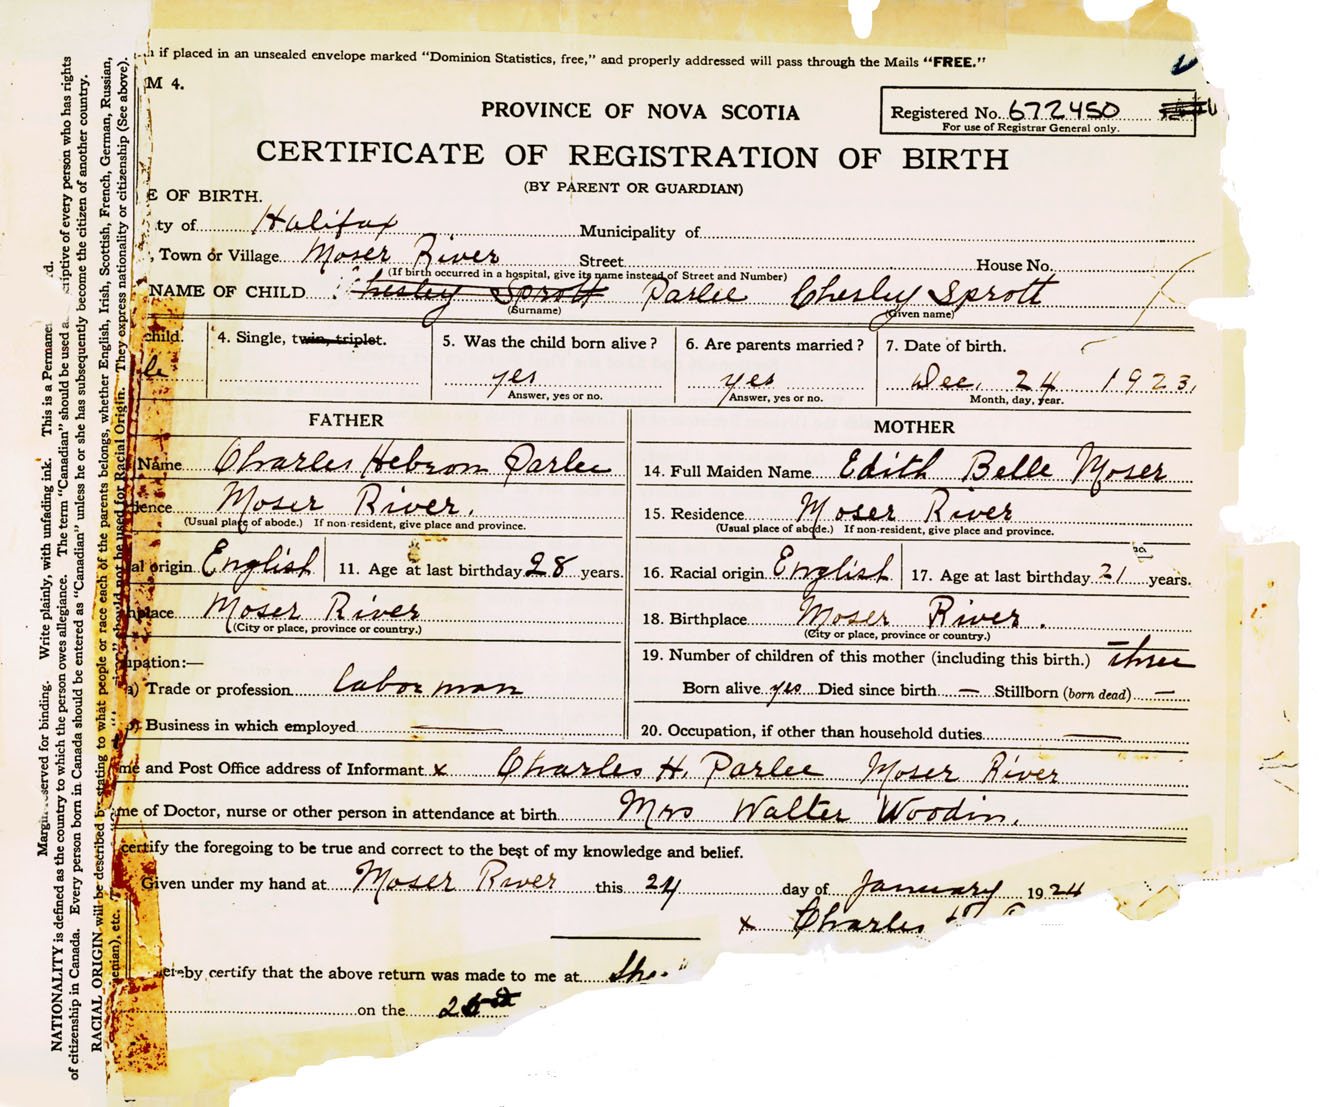 if placed in an unsealed envelope marked "Dominion Statistics, free," and properly addressed will pass through the Mails "FREE."
M 4.
PROVINCE OF NOVA SCOTIA
Registered No. 672450
For use of Registrar General only.
CERTIFICATE OF REGISTRATION OF BIRTH
(BY PARENT OR GUARDIAN)
E OF BIRTH.
ty of Halifax Municipality of
, Town or Village Moser River Street House No.
(If birth occurred in a hospital, give its name instead of Street and Number)
NAME OF CHILD Chesley Sprott Parlee Chesley Sprott
(Surname) (Given name)
child. 4. Single, twin, triplet. 5. Was the child born alive ? 6. Are parents married ? 7. Date of birth.
le yes yes Dec. 24 1923.
Answer, yes or no. Answer, yes or no. Month, day, year.
FATHER MOTHER
Name Charles Hebron Parlee 14. Full Maiden Name Edith Belle Moser
dence Moser River. 15. Residence Moser River
(Usual place of abode.) If non-resident, give place and province. (Usual place of abode.) If non-resident, give place and province.
al origin English 11. Age at last birthday 28 years. 16. Racial origin English 17. Age at last birthday 21 years.
hplace Moser River 18. Birthplace Moser River.
(City or place, province or country.) (City or place, province or country.)
upation:— 19. Number of children of this mother (including this birth.) three
a) Trade or profession labor man Born alive yes Died since birth — Stillborn (born dead) —
b) Business in which employed — 20. Occupation, if other than household duties —
me and Post Office address of Informant x Charles H. Parlee Moser River
me of Doctor, nurse or other person in attendance at birth Mrs Walter Woodin.
certify the foregoing to be true and correct to the best of my knowledge and belief.
Given under my hand at Moser River this 24 day of January 1924
x Charles H
ereby certify that the above return was made to me at She
on the
Margin reserved for binding. Write plainly, with unfading ink. This is a Permane d.
NATIONALITY is defined as the country to which the person owes allegiance. The term "Canadian" should be used a criptive of every person who has rights
of citizenship in Canada. Every person born in Canada should be entered as "Canadian" unless he or she has subsequently become the citizen of another country.
RACIAL ORIGIN will be described by stating to what people or race each of the parents belongs, whether English, Irish, Scottish, French, German, Russian,
enian), etc. should not be used for Racial Origin. They express nationality or citizenship (See above).